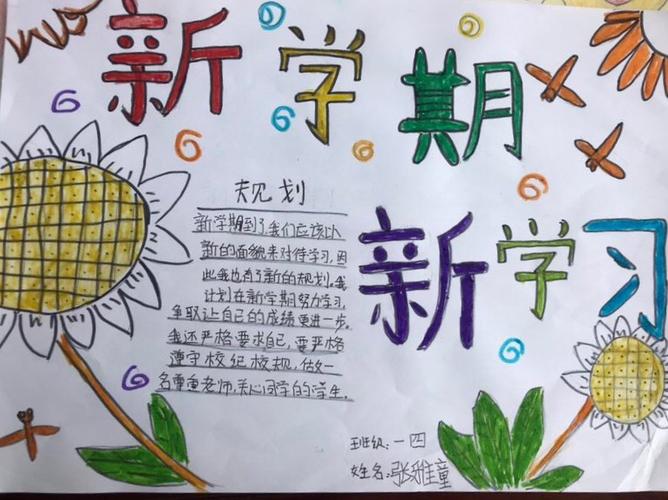 新学期
新学习
规划
新学期到了,我们应该以
新的面貌来对待学习,因
此我也有了新的规划。我
计划在新学期努力学习,
争取让自己的成绩更进一步。
我还严格要求自己,要严格
遵守校纪校规,做一
名尊重老师,关心同学的学生。
班级:一四
姓名:张雅童